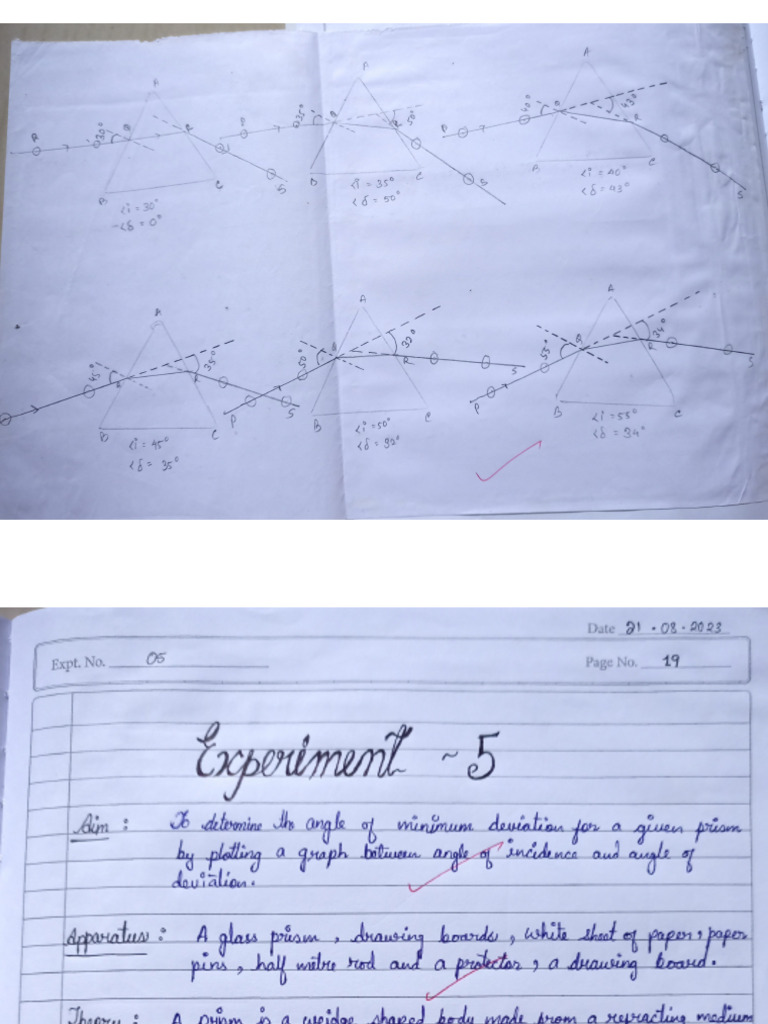 A A A
30° 35° 50° 40° 43°
P Q R P Q R P Q R
B C S B C S B C S
<i = 30°
-<δ = 0°
<i = 35°
<δ = 50°
<i = 40°
<δ = 43°
A A A
45° 35° 50° 32° 55° 34°
B C S P Q R B C S P Q R B C S
<i = 45°
<δ = 35°
<i = 50°
<δ = 32°
<i = 55°
<δ = 34°
Date 21 · 08 · 2023
Expt. No. 05
Page No. 19
Experiment ~ 5
Aim : To determine the angle of minimum deviation for a given prism
by plotting a graph between angle of incidence and angle of
deviation.
Apparatus : A glass prism , drawing boards , white sheet of paper , paper
pins , half metre rod and a protector , a drawing board.
Theory : A prism is a wedge shaped body made from a refracting medium